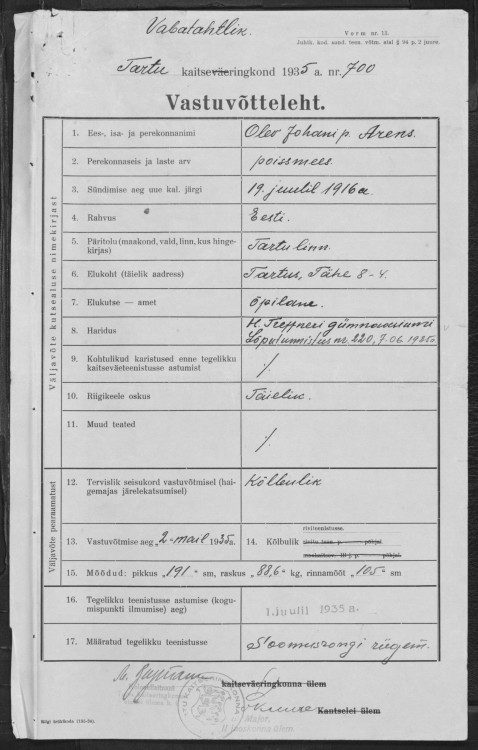 Vabatahtlik.
Vorm nr. 13.
Juhik. kod. sund. teen. võtm. alal § 94 p. 3 juure.
Tartu kaitseväeringkond 1935 a. nr. 700
Vastuvõtteleht.
Väljavõte kutsealuse nimekirjast
1. Ees-, isa- ja perekonnanimi Olev Johani p. Arens.
2. Perekonnaseis ja laste arv poissmees.
3. Sündimise aeg uue kal. järgi 19. juulil 1916 a.
4. Rahvus Eesti.
5. Päritolu (maakond, vald, linn, kus hinge-
kirjas) Tartu linn.
6. Elukoht (täielik aadress) Tartus, Tähe 8-4.
7. Elukutse — amet Õpilane.
8. Haridus H. Treffneri gümnaasiumi
Lõputunnistus nr. 220, 7.06 1935a
9. Kohtulikud karistused enne tegelikku
kaitseväeteenistusse astumist /.
10. Riigikeele oskus Täielik.
11. Muud teated /.
Väljavõte peuraamatust
12. Tervislik seisukord vastuvõtmisel (hai-
gemajas järelekatsumisel) Kõlbulik
13. Vastuvõtmise aeg „2“ mail 1935 a. 14. Kõlbulik
riviteenistusse.
15. Mõõdud: pikkus „191“ sm, raskus „83,6“ kg, rinnamõõt „105“ sm
16. Tegelikku teenistusse astumise (kogu-
mispunkti ilmumise) aeg) 1. juulil 1935 a.
17. Määratud tegelikku teenistusse Soomusrongi rügem.
kaitseväeringkonna ülem
Kantselei ülem
Major,